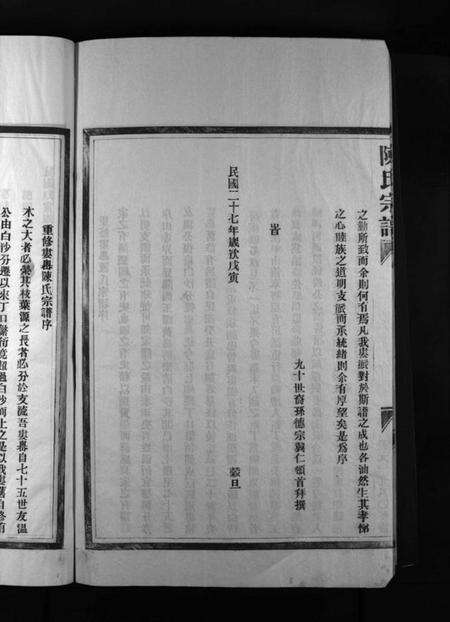 陳氏宗譜
之勤所致而余則何有焉凡我婁派對於斯譜之成也各油然生其孝悌
之心睦族之道明支派而承統緒則余有厚望矣是為序
九十世裔孫德宗 仁頓首拜撰
旹
民國二十七年歲次戊寅 穀旦
重修婁 陳氏宗譜序
木之大者必 其枝葉源之長者必分於支流吾婁 自七十五世友溫
公由白沙分遷以來丁口 衍竟超過白沙而上之是以我婁